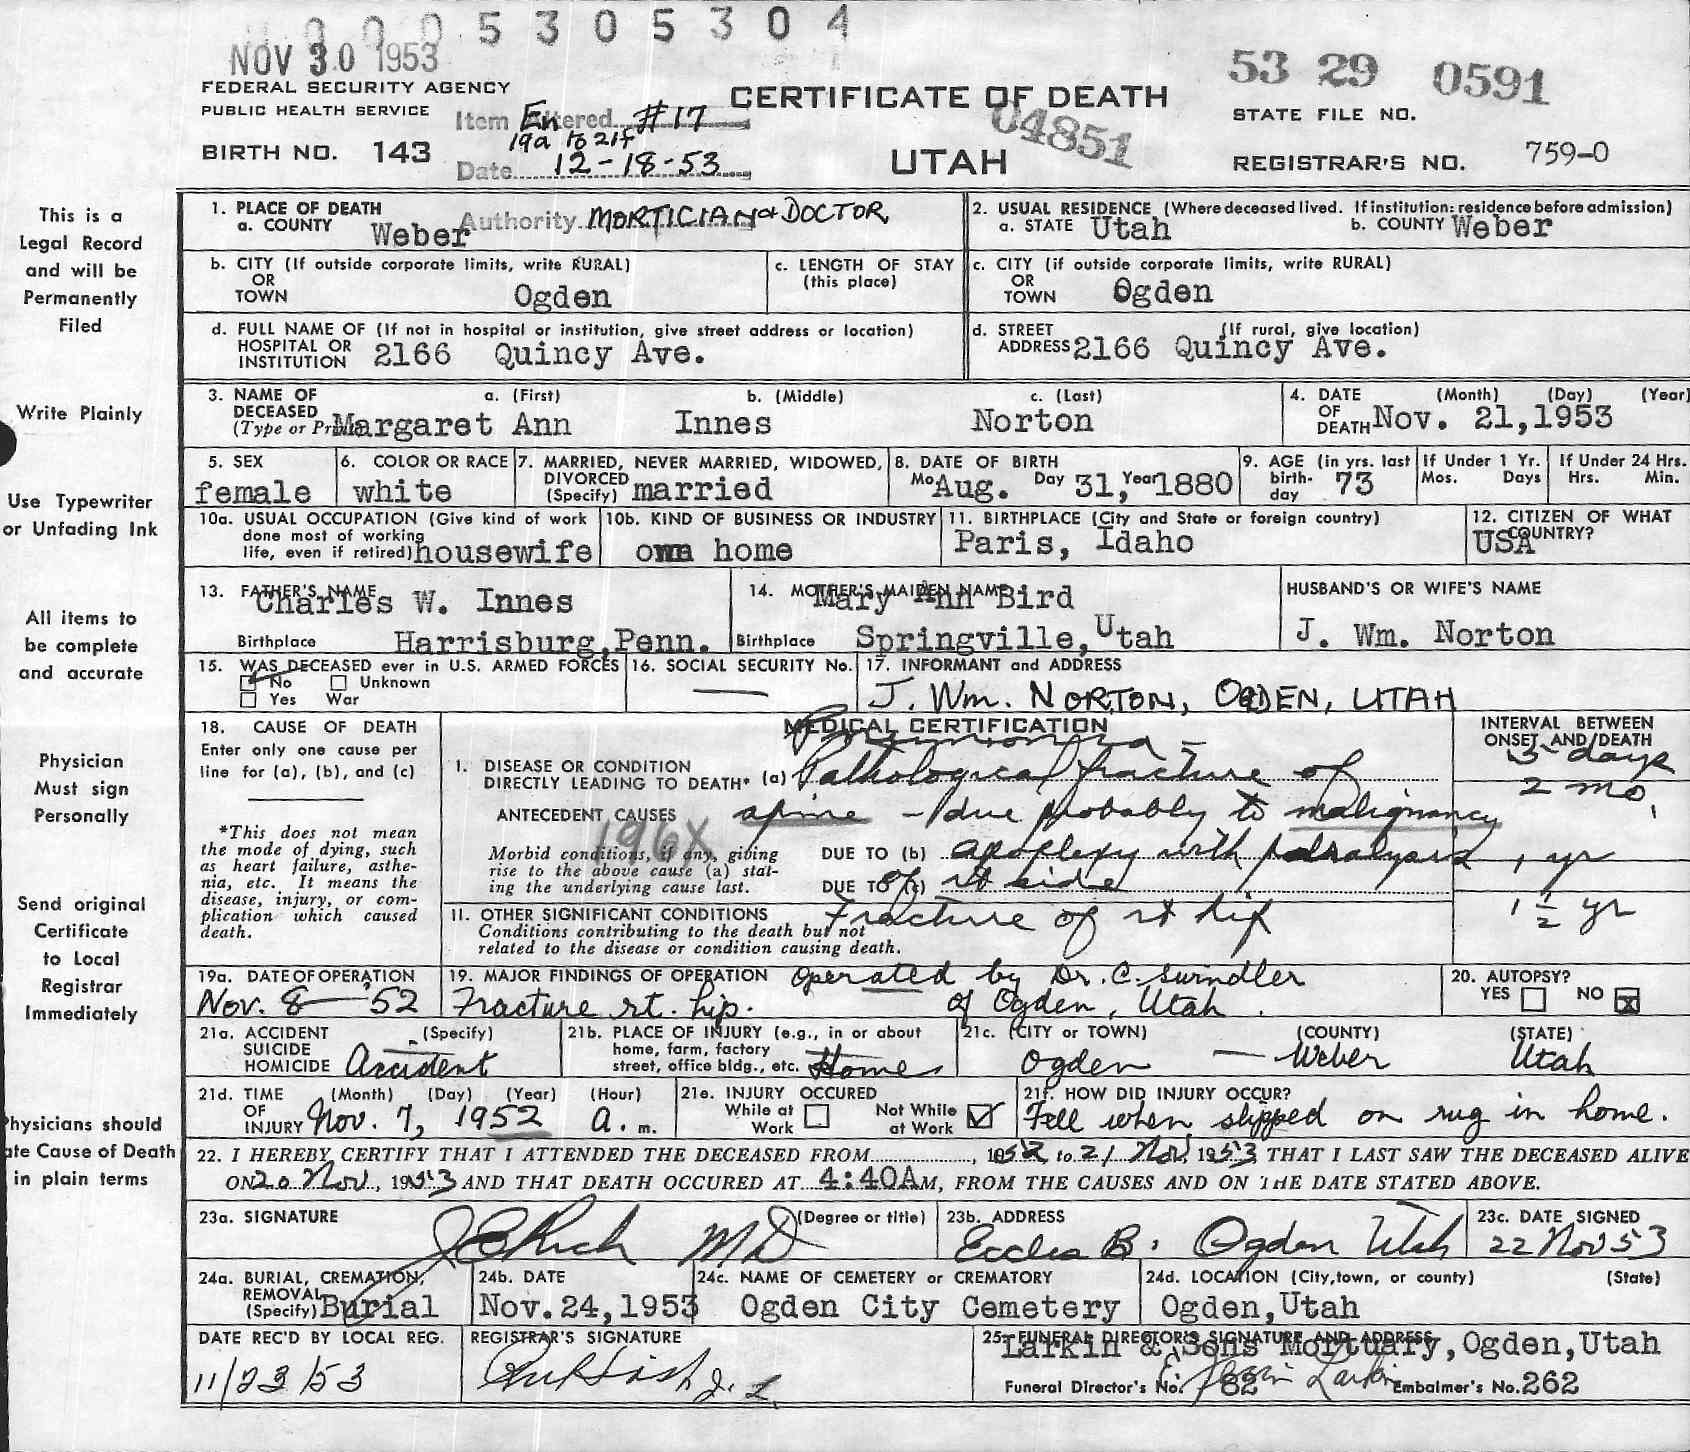 0005305304
NOV 30 1953
53 29 0591
FEDERAL SECURITY AGENCY
PUBLIC HEALTH SERVICE
CERTIFICATE OF DEATH
STATE FILE NO.
Item Entered #17
19a to 21f
04851
BIRTH NO. 143
Date 12-18-53
UTAH
REGISTRAR'S NO. 759-0
This is a
Legal Record
and will be
Permanently
Filed
Write Plainly
Use Typewriter
or Unfading Ink
All items to
be complete
and accurate
Physician
Must sign
Personally
Send original
Certificate
to Local
Registrar
Immediately
Physicians should
ate Cause of Death
in plain terms
1. PLACE OF DEATH
a. COUNTY Weber Authority MORTICIAN & DOCTOR
2. USUAL RESIDENCE (Where deceased lived. If institution: residence before admission)
a. STATE Utah b. COUNTY Weber
b. CITY (If outside corporate limits, write RURAL)
OR
TOWN Ogden
c. LENGTH OF STAY
(this place)
c. CITY (if outside corporate limits, write RURAL)
OR
TOWN Ogden
d. FULL NAME OF (If not in hospital or institution, give street address or location)
HOSPITAL OR
INSTITUTION 2166 Quincy Ave.
d. STREET (If rural, give location)
ADDRESS 2166 Quincy Ave.
3. NAME OF a. (First) b. (Middle) c. (Last)
DECEASED
(Type or Print) Margaret Ann Innes Norton
4. DATE (Month) (Day) (Year)
OF
DEATH Nov. 21, 1953
5. SEX
female
6. COLOR OR RACE
white
7. MARRIED, NEVER MARRIED, WIDOWED,
DIVORCED
(Specify) married
8. DATE OF BIRTH
Mo Aug. Day 31, Year 1880
9. AGE (in yrs. last
birth-
day 73
If Under 1 Yr.
Mos. Days
If Under 24 Hrs.
Hrs. Min.
10a. USUAL OCCUPATION (Give kind of work
done most of working
life, even if retired) housewife
10b. KIND OF BUSINESS OR INDUSTRY
own home
11. BIRTHPLACE (City and State or foreign country)
Paris, Idaho
12. CITIZEN OF WHAT
COUNTRY?
USA
13. FATHER'S NAME
Charles W. Innes
Birthplace Harrisburg, Penn.
14. MOTHER'S MAIDEN NAME
Mary Ann Bird
Birthplace Springville, Utah
HUSBAND'S OR WIFE'S NAME
J. Wm. Norton
15. WAS DECEASED ever in U.S. ARMED FORCES
No Unknown
Yes War
16. SOCIAL SECURITY No.
—
17. INFORMANT and ADDRESS
J. Wm. NORTON, OGDEN, UTAH
18. CAUSE OF DEATH
Enter only one cause per
line for (a), (b), and (c)
*This does not mean
the mode of dying, such
as heart failure, asthe-
nia, etc. It means the
disease, injury, or com-
plication which caused
death.
MEDICAL CERTIFICATION
INTERVAL BETWEEN
ONSET AND/DEATH
Pneumonia - 5 days
I. DISEASE OR CONDITION
DIRECTLY LEADING TO DEATH* (a) Pathological fracture of 2 mo.
ANTECEDENT CAUSES spine - due probably to malignancy
196X
Morbid conditions, if any, giving
rise to the above cause (a) stat-
ing the underlying cause last.
DUE TO (b) apoplexy with paralysis 1 yr
DUE TO (c) of rt side
II. OTHER SIGNIFICANT CONDITIONS Fracture of rt hip 1 1/2 yr
Conditions contributing to the death but not
related to the disease or condition causing death.
19a. DATE OF OPERATION
Nov. 8 - 52
19. MAJOR FINDINGS OF OPERATION operated by Dr. C. Swindler
Fracture rt. hip. of Ogden, Utah.
20. AUTOPSY?
YES NO X
21a. ACCIDENT (Specify)
SUICIDE
HOMICIDE Accident
21b. PLACE OF INJURY (e.g., in or about
home, farm, factory
street, office bldg., etc. Home
21c. (CITY or TOWN) (COUNTY) (STATE)
Ogden — Weber Utah
21d. TIME (Month) (Day) (Year) (Hour)
OF
INJURY Nov. 7, 1952 a. m.
21e. INJURY OCCURED
While at Not While
Work at Work
21f. HOW DID INJURY OCCUR?
Fell when slipped on rug in home.
22. I HEREBY CERTIFY THAT I ATTENDED THE DECEASED FROM , 1952 to 21 Nov, 1953, THAT I LAST SAW THE DECEASED ALIVE
ON 20 Nov, 1953 AND THAT DEATH OCCURED AT 4:40AM, FROM THE CAUSES AND ON THE DATE STATED ABOVE.
23a. SIGNATURE (Degree or title)
J E Rich MD
23b. ADDRESS
Eccles B. Ogden Utah
23c. DATE SIGNED
22 Nov 53
24a. BURIAL, CREMATION,
REMOVAL
(Specify) Burial
24b. DATE
Nov. 24, 1953
24c. NAME OF CEMETERY or CREMATORY
Ogden City Cemetery
24d. LOCATION (City, town, or county) (State)
Ogden, Utah
DATE REC'D BY LOCAL REG.
11/23/53
REGISTRAR'S SIGNATURE
25. FUNERAL DIRECTOR'S SIGNATURE AND ADDRESS
Larkin & Sons Mortuary, Ogden, Utah
Funeral Director's No. 82 Larkin Embalmer's No. 262